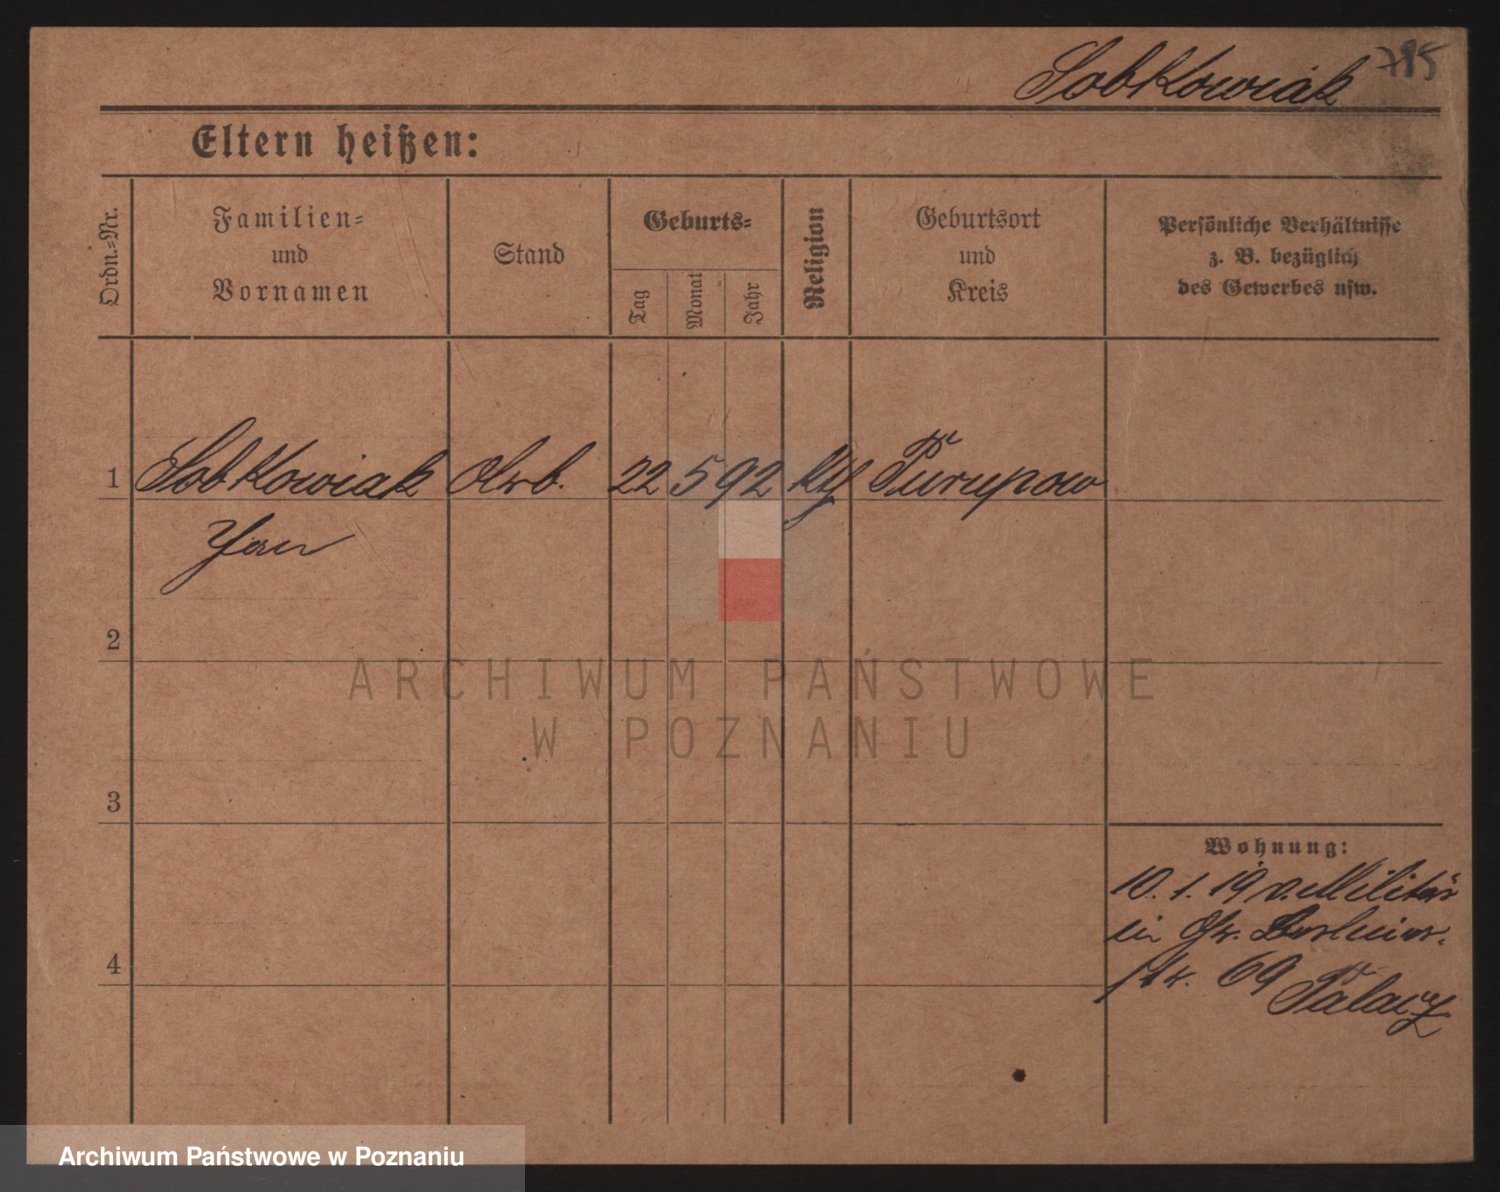 Sobkowiak 785
Eltern heißen:
Ordn.=Nr.
Familien=
und
Vornamen
Stand
Geburts=
Tag
Monat
Jahr
Religion
Geburtsort
und
Kreis
Persönliche Verhältnisse
z. B. bezüglich
des Gewerbes usw.
1 Sobkowiak Arb. 22 5 92 kth
Jan
2
3
4
Wohnung:
10. 1. 19 v. Militär
in Gr. Berliner-
str. 69 Palacz
ARCHIWUM PAŃSTWOWE
W POZNANIU
Archiwum Państwowe w Poznaniu